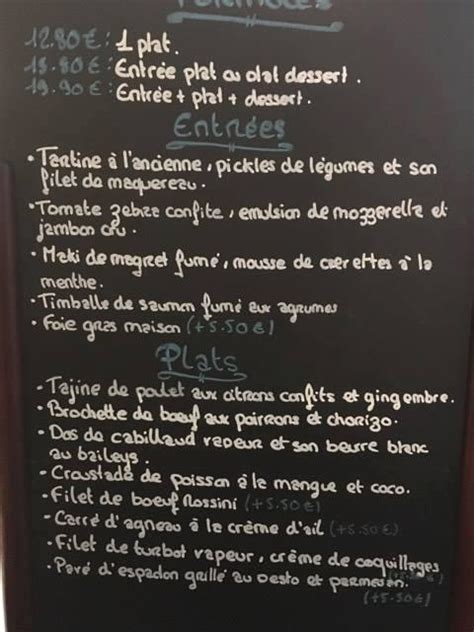 FORMULES
12.80€: 1 plat.
15.80€: Entrée plat ou plat dessert.
19.90€: Entrée + plat + dessert.
Entrées
• Tartine à l'ancienne, pickles de légumes et son
filet de maquereau.
• Tomate zebra confite, emulsion de mozzerella et
jambon cru.
• Maki de magret fumé, mousse de carrettes à la
menthe.
• Timballe de saumon fumé aux agrumes
• Foie gras maison (+5.50€)
Plats
• Tajine de poulet aux citrons confits et gingembre.
• Brochette de boeuf aux poivrons et chorizo.
• Dos de cabillaud vapeur et son beurre blanc
au baileys.
• Croustade de poisson à la mangue et coco.
• Filet de boeuf Rossini (+5.50€)
• Carré d'agneau à la crème d'ail (+5.50€)
• Filet de turbot vapeur, crème de coquillages
(+5.50€)
• Pavé d'espadon grillé au pesto et parmesan.
(+5.50€)